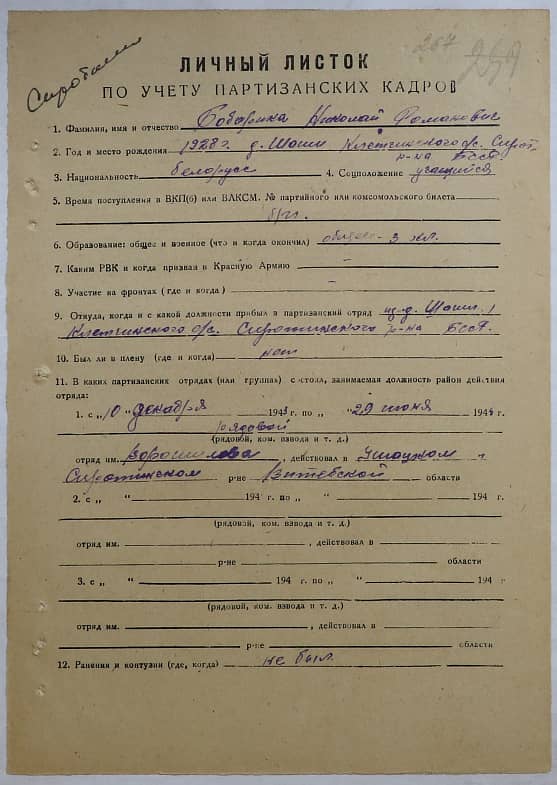 267
ЛИЧНЫЙ ЛИСТОК
ПО УЧЕТУ ПАРТИЗАНСКИХ КАДРОВ
1. Фамилия, имя и отчество Николай Романович
2. Год и место рождения 1928 г. д. Шопи Клетинского с/с. Сирот.
р-на БССР
3. Национальность белорусс 4. Соцположение учащийся
5. Время поступления в ВКП(б) или ВЛКСМ. № партийного или комсомольского билета
б/п.
6. Образование: общее и военное (что и когда окончил) общее 3 кл.
7. Каким РВК и когда призван в Красную Армию
8. Участие на фронтах (где и когда)
9. Откуда, когда и с какой должности прибыл в партизанский отряд из д. Шопи
Клетинского с/с. Сиротинского р-на БССР.
10. Был ли в плену (где и когда) нет
11. В каких партизанских отрядах (или группах) состоял, занимаемая должность район действия
отряда:
1. с „10 " декабря 1943 г. по „ "29 июня 1944 г.
рядовой
(рядовой, ком. взвода и т. д.)
отряд им. Ворошилова, действовал в Ушацком и
Сиротинском р-не Витебской области
2. с „ " 194 г. по „ " 194 г.
(рядовой, ком. взвода и т. д.)
отряд им. , действовал в
р-не области
3. с „ " 194 г. по „ " 194 г
(рядовой, ком. взвода и т. д.)
отряд им. , действовал в
р-не области
12. Ранения и контузии (где, когда) не был.